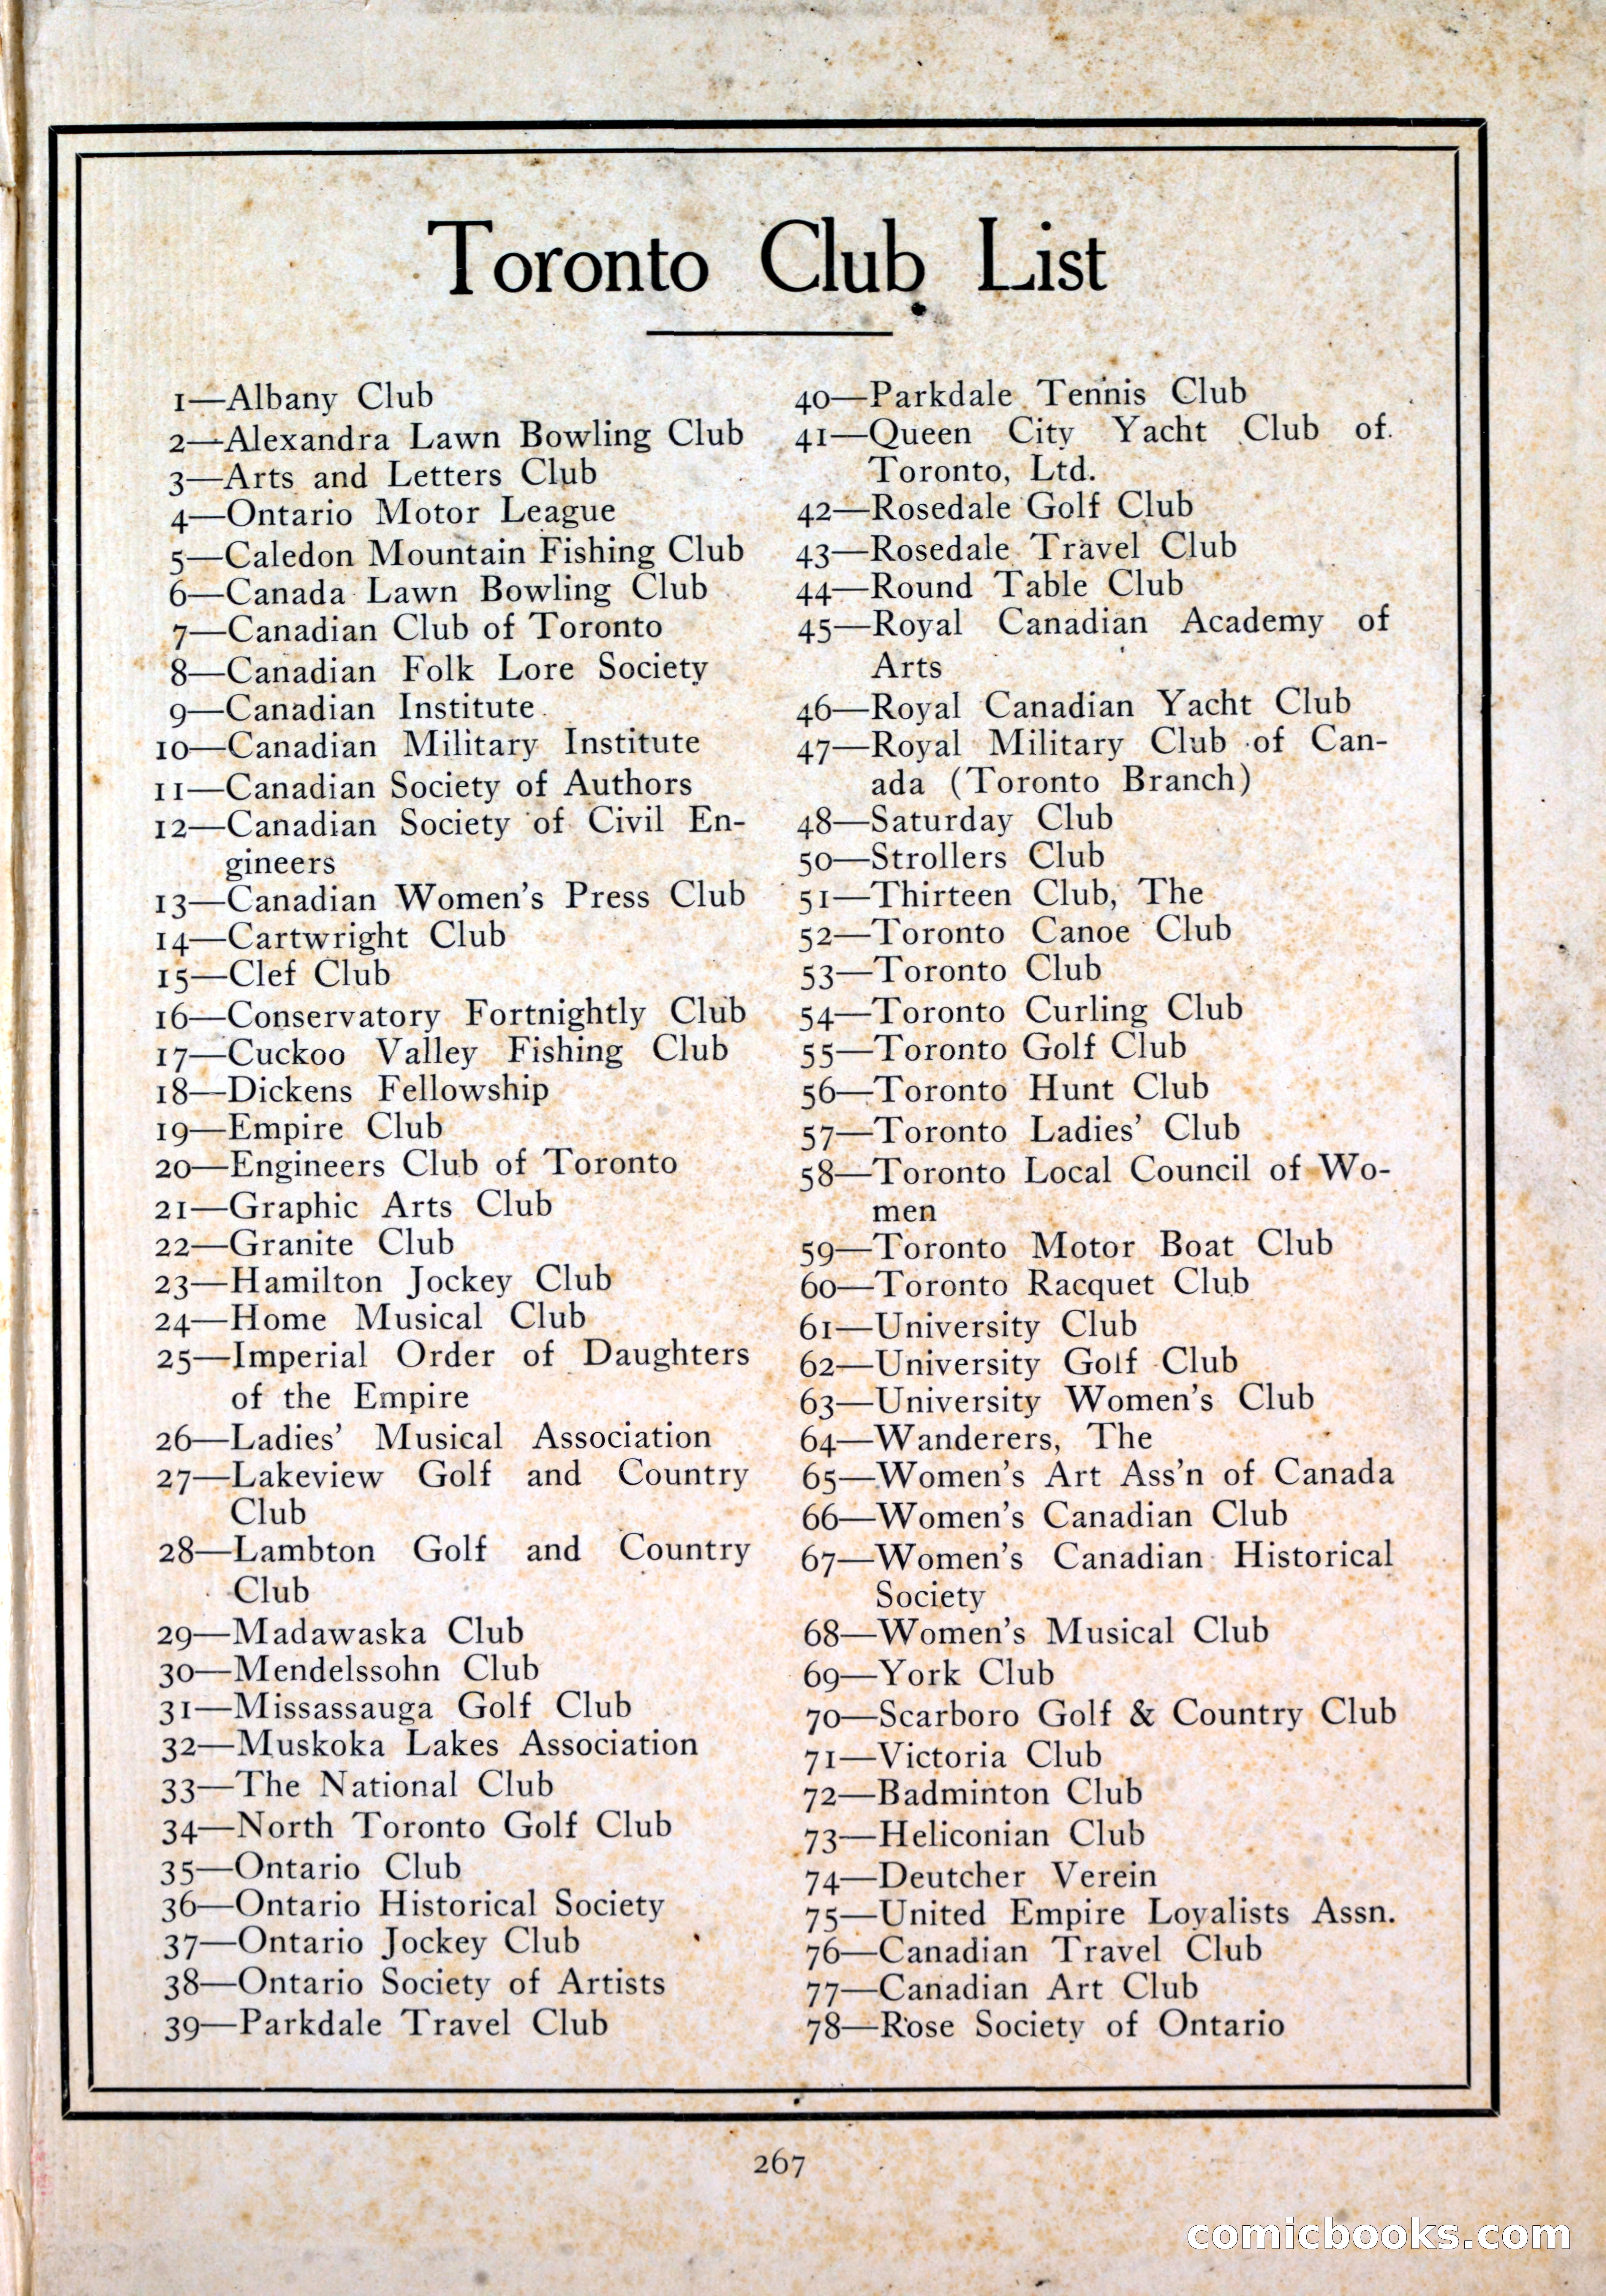 Toronto Club List
1—Albany Club
2—Alexandra Lawn Bowling Club
3—Arts and Letters Club
4—Ontario Motor League
5—Caledon Mountain Fishing Club
6—Canada Lawn Bowling Club
7—Canadian Club of Toronto
8—Canadian Folk Lore Society
9—Canadian Institute
10—Canadian Military Institute
11—Canadian Society of Authors
12—Canadian Society of Civil En-
gineers
13—Canadian Women's Press Club
14—Cartwright Club
15—Clef Club
16—Conservatory Fortnightly Club
17—Cuckoo Valley Fishing Club
18—Dickens Fellowship
19—Empire Club
20—Engineers Club of Toronto
21—Graphic Arts Club
22—Granite Club
23—Hamilton Jockey Club
24—Home Musical Club
25—Imperial Order of Daughters
of the Empire
26—Ladies' Musical Association
27—Lakeview Golf and Country
Club
28—Lambton Golf and Country
Club
29—Madawaska Club
30—Mendelssohn Club
31—Missassauga Golf Club
32—Muskoka Lakes Association
33—The National Club
34—North Toronto Golf Club
35—Ontario Club
36—Ontario Historical Society
37—Ontario Jockey Club
38—Ontario Society of Artists
39—Parkdale Travel Club
40—Parkdale Tennis Club
41—Queen City Yacht Club of
Toronto, Ltd.
42—Rosedale Golf Club
43—Rosedale Travel Club
44—Round Table Club
45—Royal Canadian Academy of
Arts
46—Royal Canadian Yacht Club
47—Royal Military Club of Can-
ada (Toronto Branch)
48—Saturday Club
50—Strollers Club
51—Thirteen Club, The
52—Toronto Canoe Club
53—Toronto Club
54—Toronto Curling Club
55—Toronto Golf Club
56—Toronto Hunt Club
57—Toronto Ladies' Club
58—Toronto Local Council of Wo-
men
59—Toronto Motor Boat Club
60—Toronto Racquet Club
61—University Club
62—University Golf Club
63—University Women's Club
64—Wanderers, The
65—Women's Art Ass'n of Canada
66—Women's Canadian Club
67—Women's Canadian Historical
Society
68—Women's Musical Club
69—York Club
70—Scarboro Golf & Country Club
71—Victoria Club
72—Badminton Club
73—Heliconian Club
74—Deutcher Verein
75—United Empire Loyalists Assn.
76—Canadian Travel Club
77—Canadian Art Club
78—Rose Society of Ontario
267
comicbooks.com